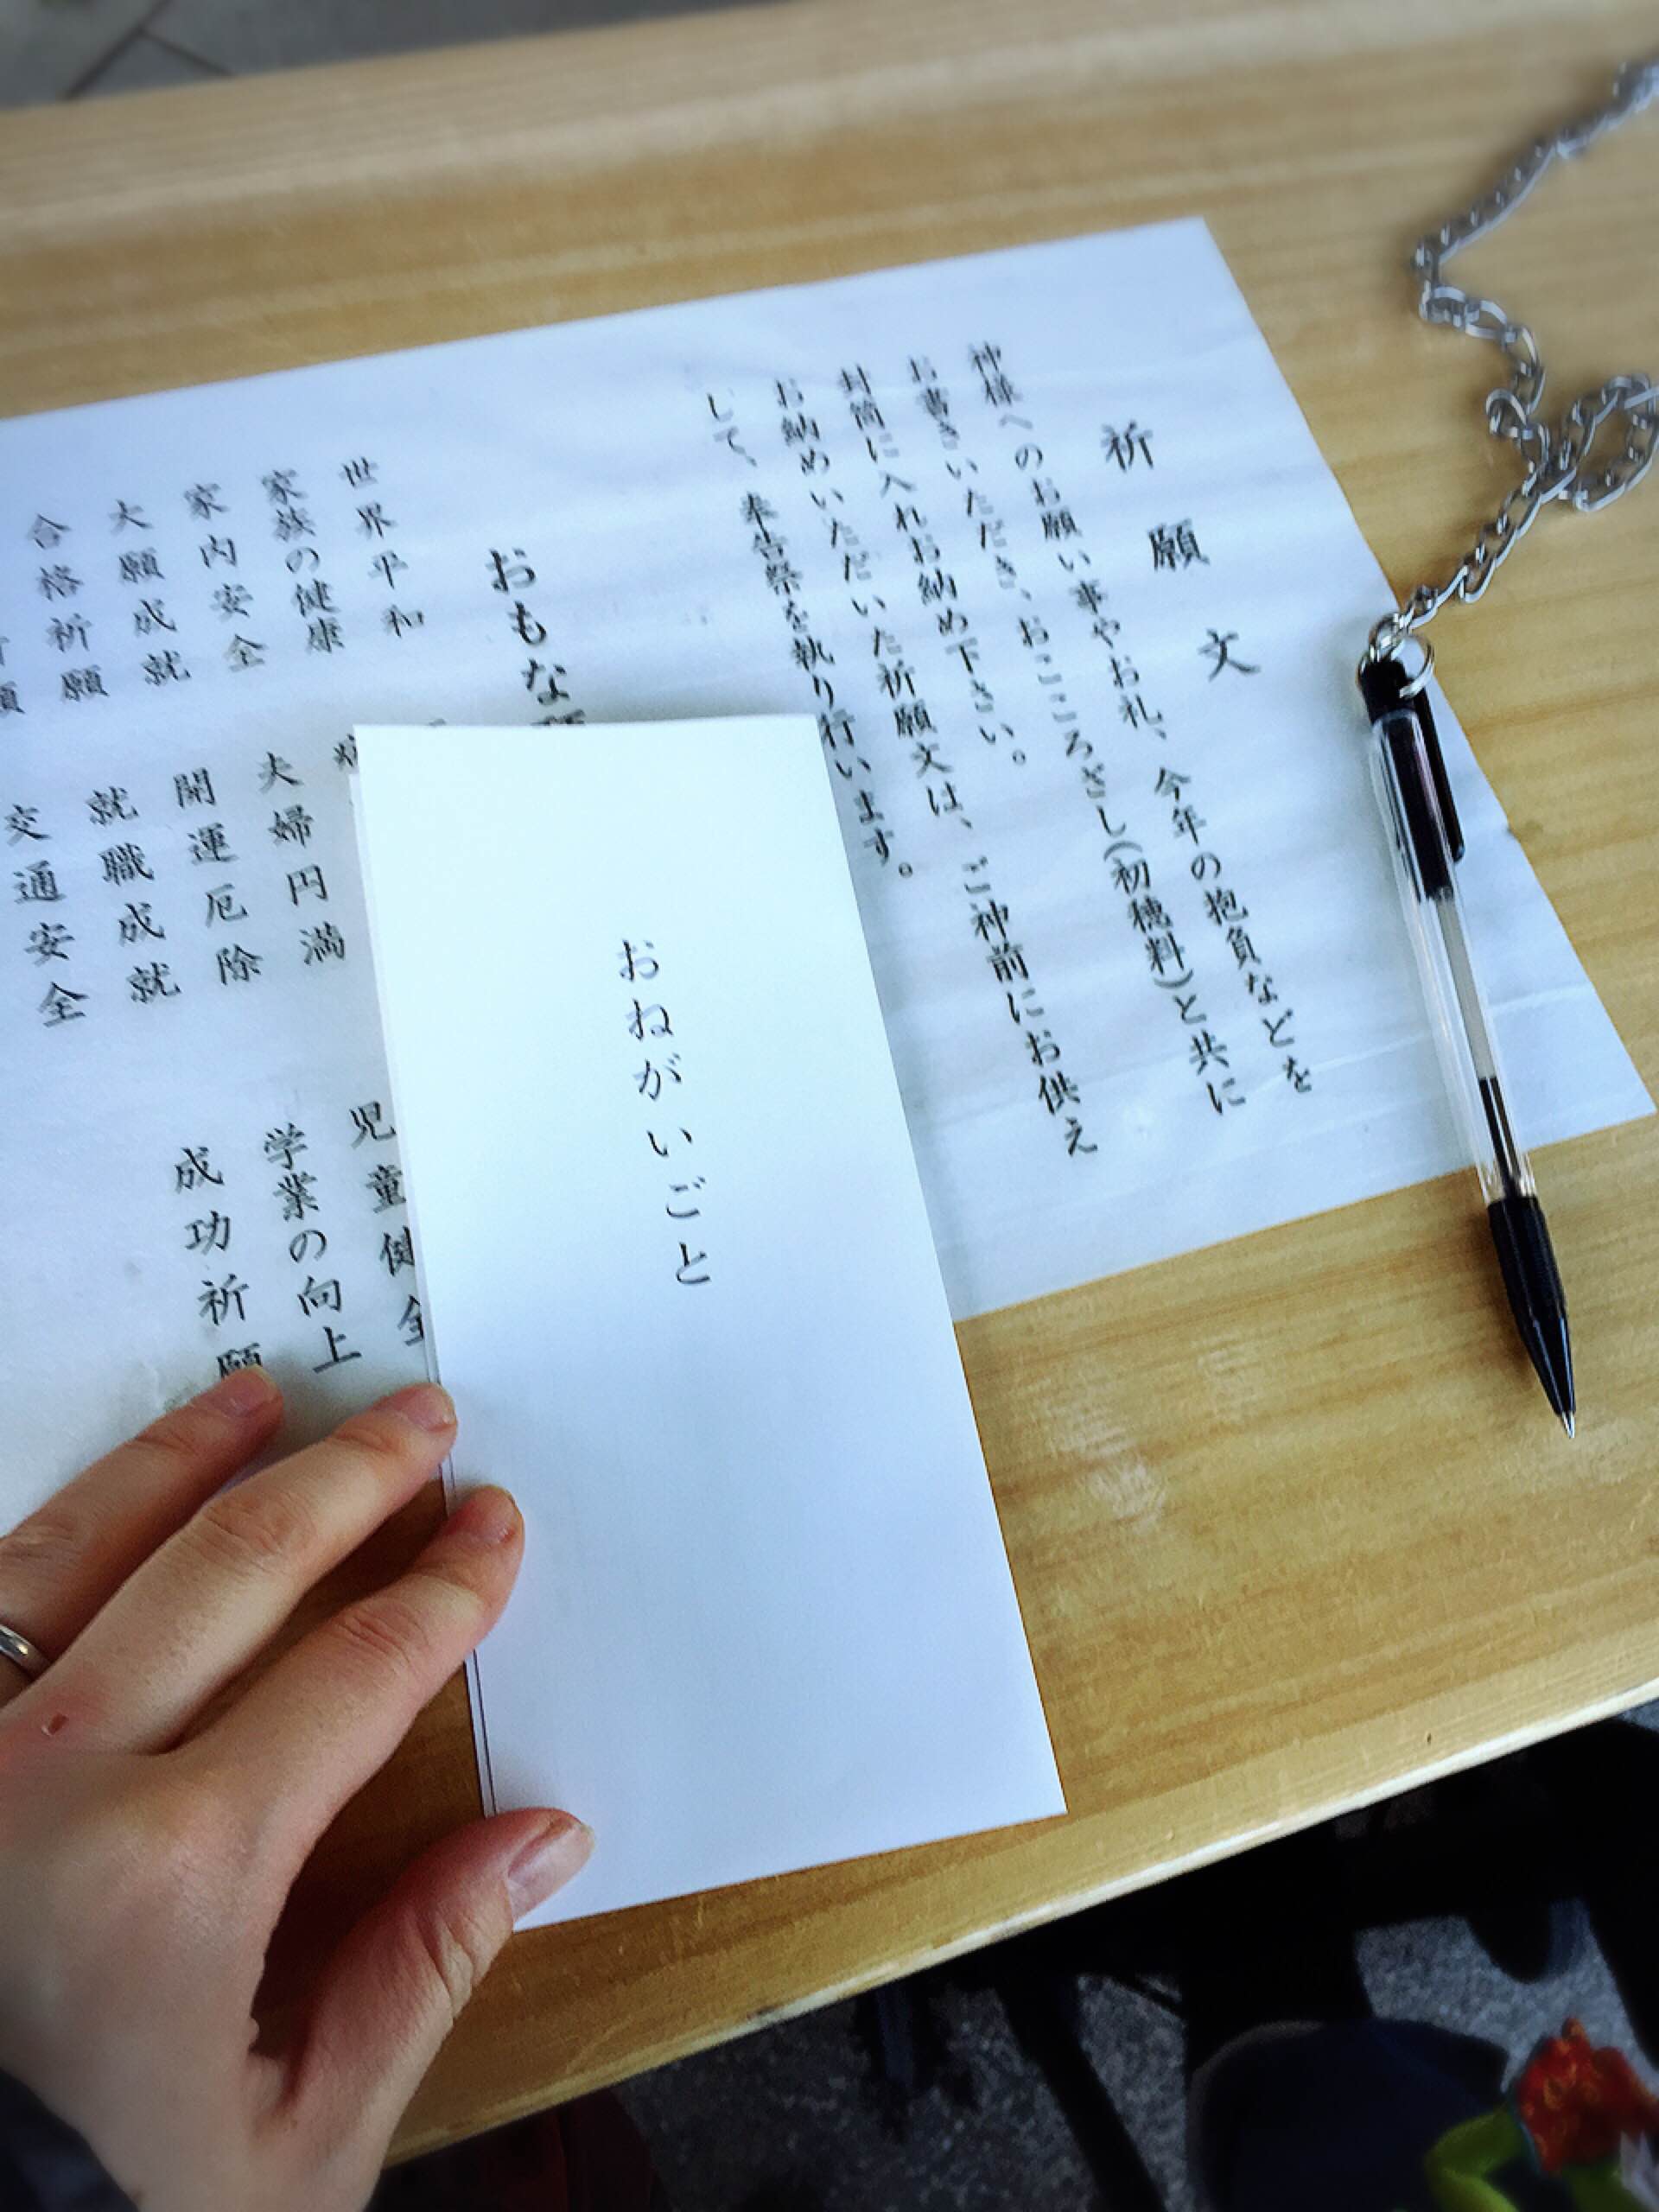 祈願文
神様へのお願い事やお礼、今年の抱負などを
お書きいただき、おこころざし(初穂料)と共に
封筒に入れお納め下さい。
お納めいただいた祈願文は、ご神前にお供え
して、奉告祭を執り行います。
おもな願
世界平和
家族の健康
家内安全
大願成就
合格祈願
願
病
夫婦円満
開運厄除
就職成就
交通安全
児童健全
学業の向上
成功祈願
おねがいごと